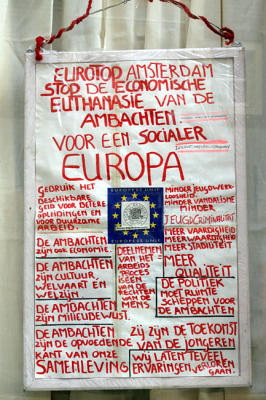 EUROTOP AMSTERDAM
STOP DE ECONOMISCHE
EUTHANASIE VAN DE
AMBACHTEN.
VOOR EEN SOCIALER
EUROPA
GEBRUIK HET
BESCHIKBARE
GELD VOOR BETERE
OPLEIDINGEN EN
VOOR DUURZAME
ARBEID.
DE AMBACHTEN
ZIJN OOK ECONOMIE.
DE AMBACHTEN
ZIJN CULTUUR,
WELVAART EN
WELZIJN
DE AMBACHTEN
ZIJN MILIEUBEWUST.
DE AMBACHTEN
ZIJN DE OPVOEDENDE
KANT VAN ONZE
SAMENLEVING
EUROPESE UNIE
EUROPESE UNIE
DEELNEMEN
VAN HET
ARBEIDS
PROCES
IS EEN
VAN DE
RECHTEN
VAN DE
MENS
MINDER JEUGDWERK-
LOOSHEID.
MINDER VANDALISME
MINDER
JEUGDCRIMINALITEIT
MEER WAARDIGHEID
MEERWAARDIGHEID
MEER STABILITEIT
MEER
QUALITEIT
DE POLITIEK
MOET RUIMTE
SCHEPPEN VOOR
DE AMBACHTEN
ZIJ ZIJN DE TOEKOMST
VAN DE JONGEREN
WIJ LATEN TEVEEL
ERVARINGEN VERLOREN
GAAN.